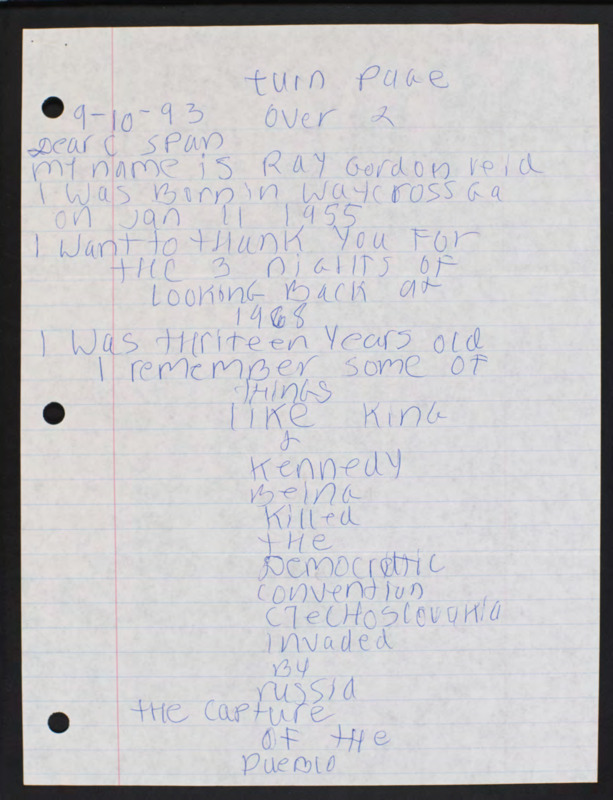 turn Page
9-10-93 over 2
Dear C span
my name is Ray Gordon reid
I was Born in Waycross Ga
on Jan 11 1955
I want to thank you For
the 3 nights of
Looking Back at
1968
I was thriteen years old
I remember some of
things
like King
&
Kennedy
Being
Killed
the
Democratic
convention
Czechoslovakia
invaded
By
russia
the capture
of the
Pueblo